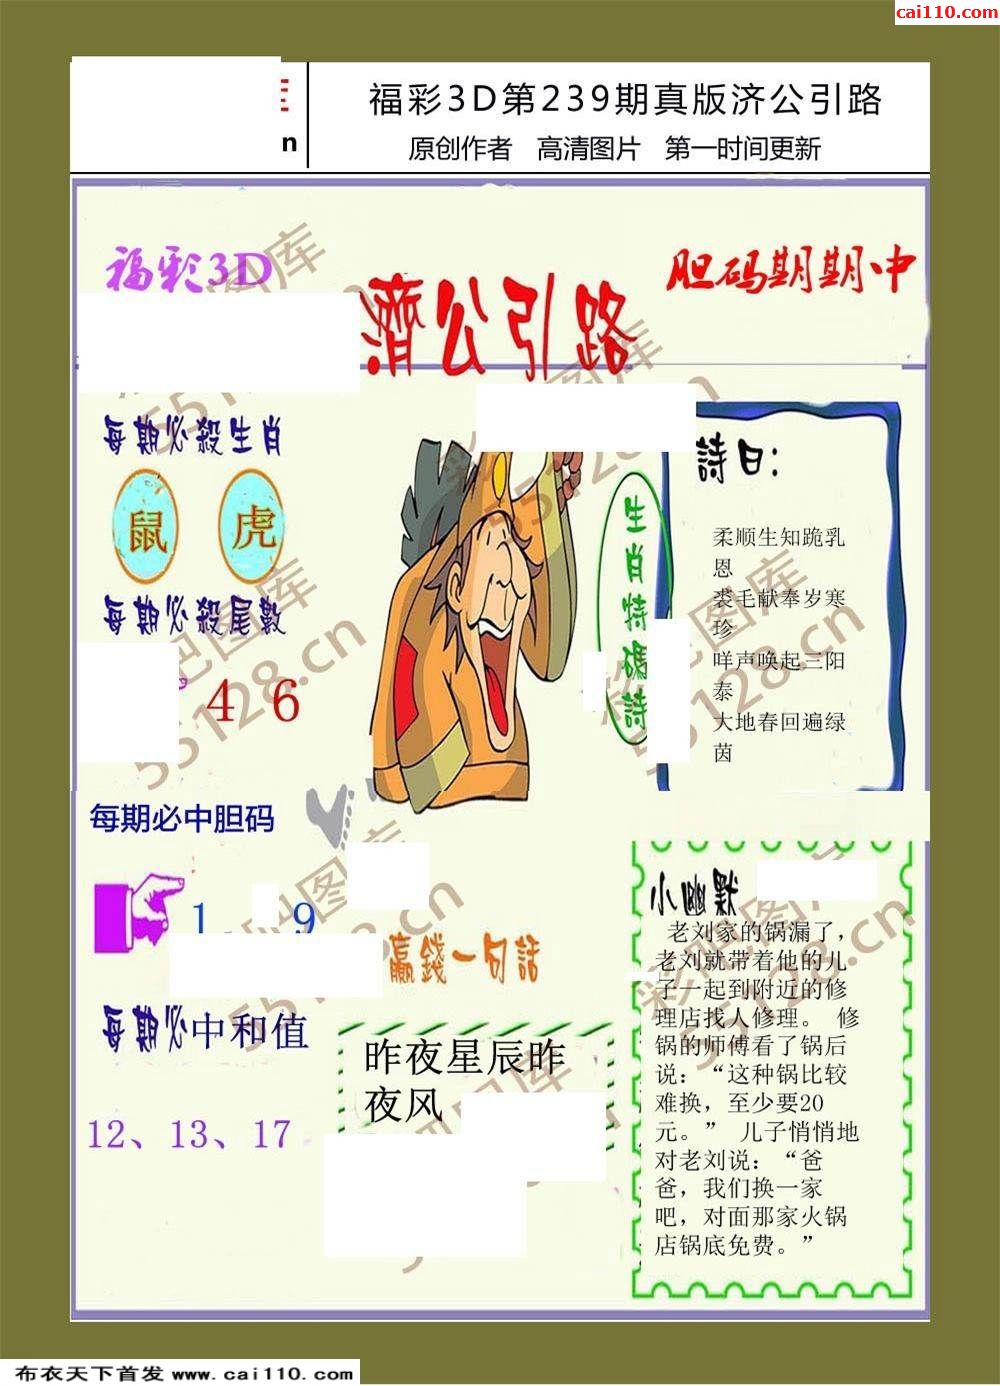 cai110.com
n
福彩3D第239期真版济公引路
原创作者 高清图片 第一时间更新
福彩3D
胆码期期中
濟公引路
每期必殺生肖
鼠 虎
每期必殺尾數
4 6
生肖特碼詩
詩曰:
柔顺生知跪乳
恩
裘毛献奉岁寒
珍
咩声唤起三阳
泰
大地春回遍绿
茵
每期必中胆码
1、 9
每期必中和值
12、13、17
贏錢一句話
昨夜星辰昨
夜风
小幽默
老刘家的锅漏了，
老刘就带着他的儿
子一起到附近的修
理店找人修理。 修
锅的师傅看了锅后
说：“这种锅比较
难换，至少要20
元。” 儿子悄悄地
对老刘说：“爸
爸，我们换一家
吧，对面那家火锅
店锅底免费。”
彩吧图库
55128.cn
布衣天下首发 www.cai110.com